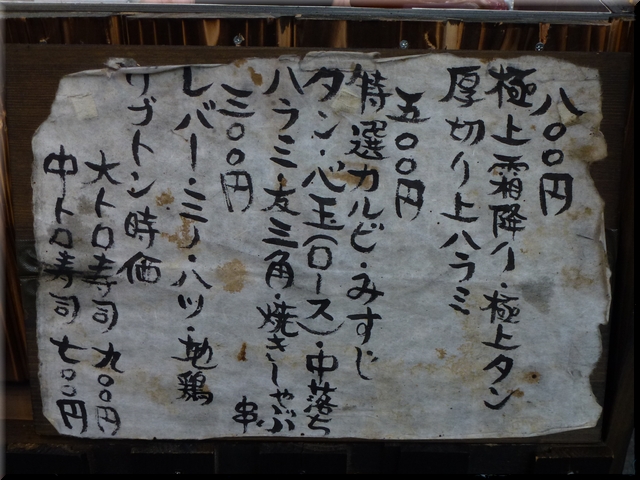 八〇〇円
極上霜降り・極上タン
厚切り上ハラミ
五〇〇円
特選カルビ・みすじ
タン・心玉(ロース)・中落ち
ハラミ・友三角・焼きしゃぶ串
三〇〇円
レバー・ミノ・ハツ・地鶏
サブトン時価
大トロ寿司 九〇〇円
中トロ寿司 七〇〇円